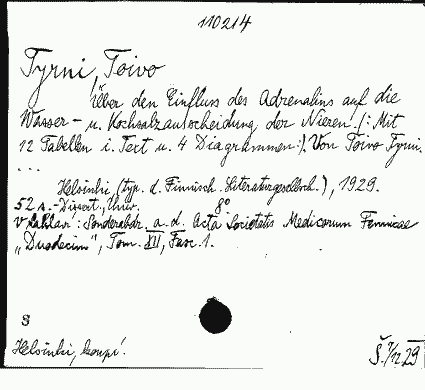 110214
Tyrni, Toivo
Über den Einfluss des Adrenalins auf die
Wasser- u. Kochsalzausscheidung der Nieren. /: Mit
12 Tabellen i. Text u. 4 Diagrammen :/. Von Toivo Tyrni.
...
Helsinki (typ. d. Finnisch. Literaturgesellsch.), 1929.
52 s. - Dissert., Univ. 8°
V záhlaví: Sonderabdr. a. d. Acta Societatis Medicorum Fennicae
„Duodecim", Tom. XII, Fasc. 1.
S
Helsinki, koupí.
Š. 7/12 29